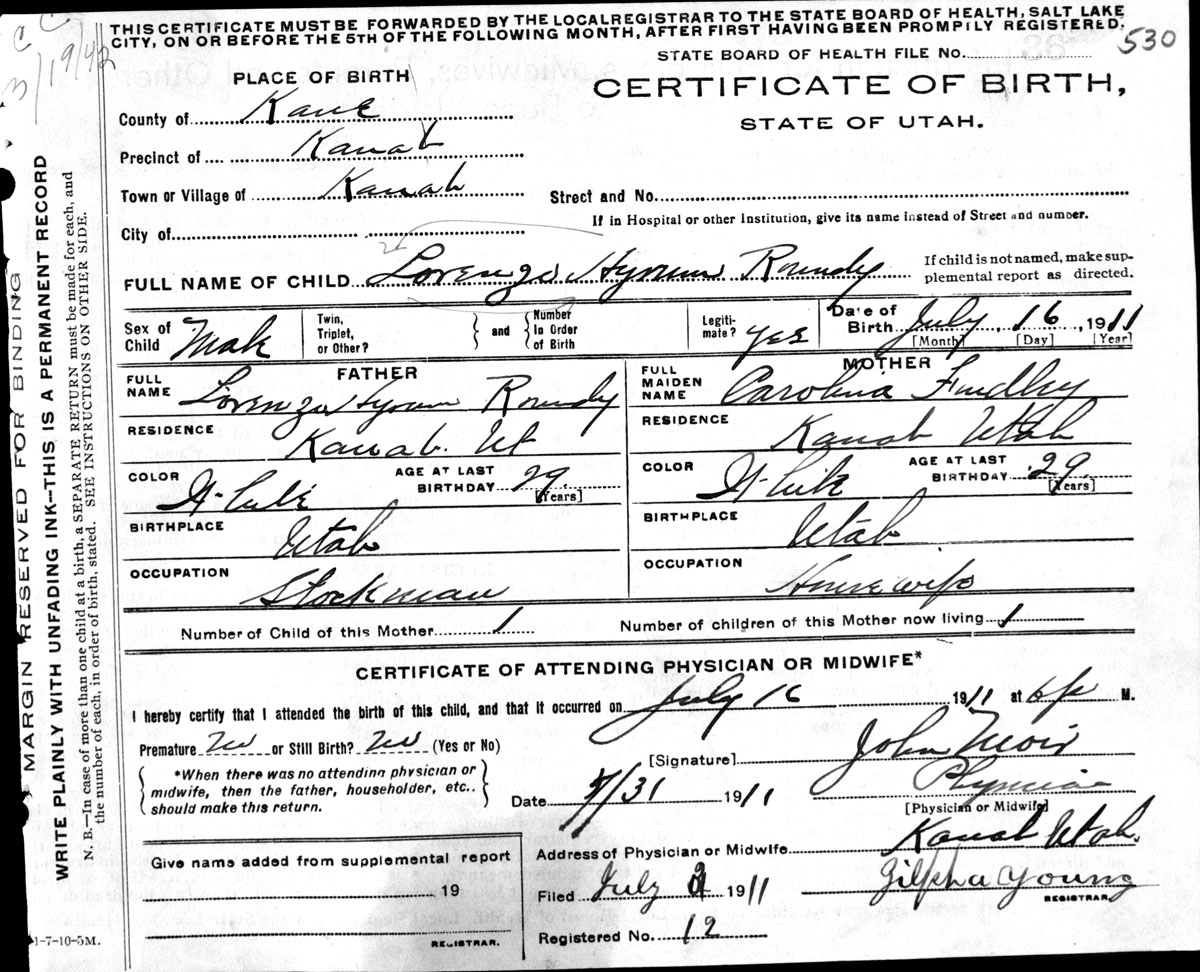 THIS CERTIFICATE MUST BE FORWARDED BY THE LOCAL REGISTRAR TO THE STATE BOARD OF HEALTH, SALT LAKE
CITY, ON OR BEFORE THE 5TH OF THE FOLLOWING MONTH, AFTER FIRST HAVING BEEN PROMPTLY REGISTERED.
530
STATE BOARD OF HEALTH FILE No.
PLACE OF BIRTH
CERTIFICATE OF BIRTH,
STATE OF UTAH.
County of Kane
Precinct of Kanab
Town or Village of Kanab
Street and No.
If in Hospital or other Institution, give its name instead of Street and number.
City of
FULL NAME OF CHILD Lorenzo Hyrum Roundy
If child is not named, make sup-
plemental report as directed.
Sex of Child Male
Twin, Triplet, or Other?
and
Number In Order of Birth
Legiti- mate? Yes
Date of Birth July 16, 1911
[Month] [Day] [Year]
FATHER
FULL NAME Lorenzo Hyrum Roundy
RESIDENCE Kanab. Ut
COLOR White
AGE AT LAST BIRTHDAY 29
[Years]
BIRTHPLACE Utah
OCCUPATION Stockman
MOTHER
FULL MAIDEN NAME Carolina Findlay
RESIDENCE Kanab Utah
COLOR White
AGE AT LAST BIRTHDAY 29
[Years]
BIRTHPLACE Utah
OCCUPATION Housewife
Number of Child of this Mother 1
Number of children of this Mother now living 1
CERTIFICATE OF ATTENDING PHYSICIAN OR MIDWIFE*
I hereby certify that I attended the birth of this child, and that it occurred on July 16 1911 at 6 p M.
Premature No or Still Birth? No (Yes or No)
*When there was no attending physician or
midwife, then the father, householder, etc..
should make this return.
[Signature] John Moir
Physician
[Physician or Midwife]
Date 7/31 1911
Address of Physician or Midwife Kanab Utah.
Filed July 1911
Zilpha Young
REGISTRAR.
Registered No. 12
Give name added from supplemental report
19
REGISTRAR.
1-7-10-5M.
MARGIN RESERVED FOR BINDING
WRITE PLAINLY WITH UNFADING INK--THIS IS A PERMANENT RECORD
N. B.—In case of more than one child at a birth, a SEPARATE RETURN must be made for each, and
the number of each, in order of birth, stated. SEE INSTRUCTIONS ON OTHER SIDE.